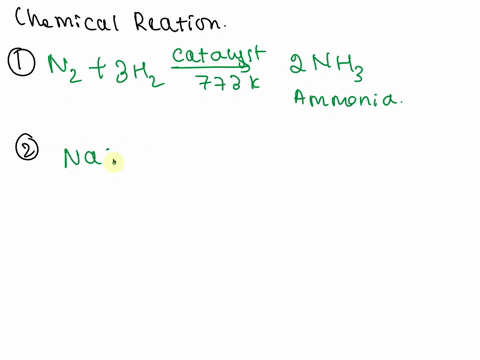 Chemical Reation.
① N₂ + 3H₂ catalyst 773 K 2NH₃
Ammonia.
② Na